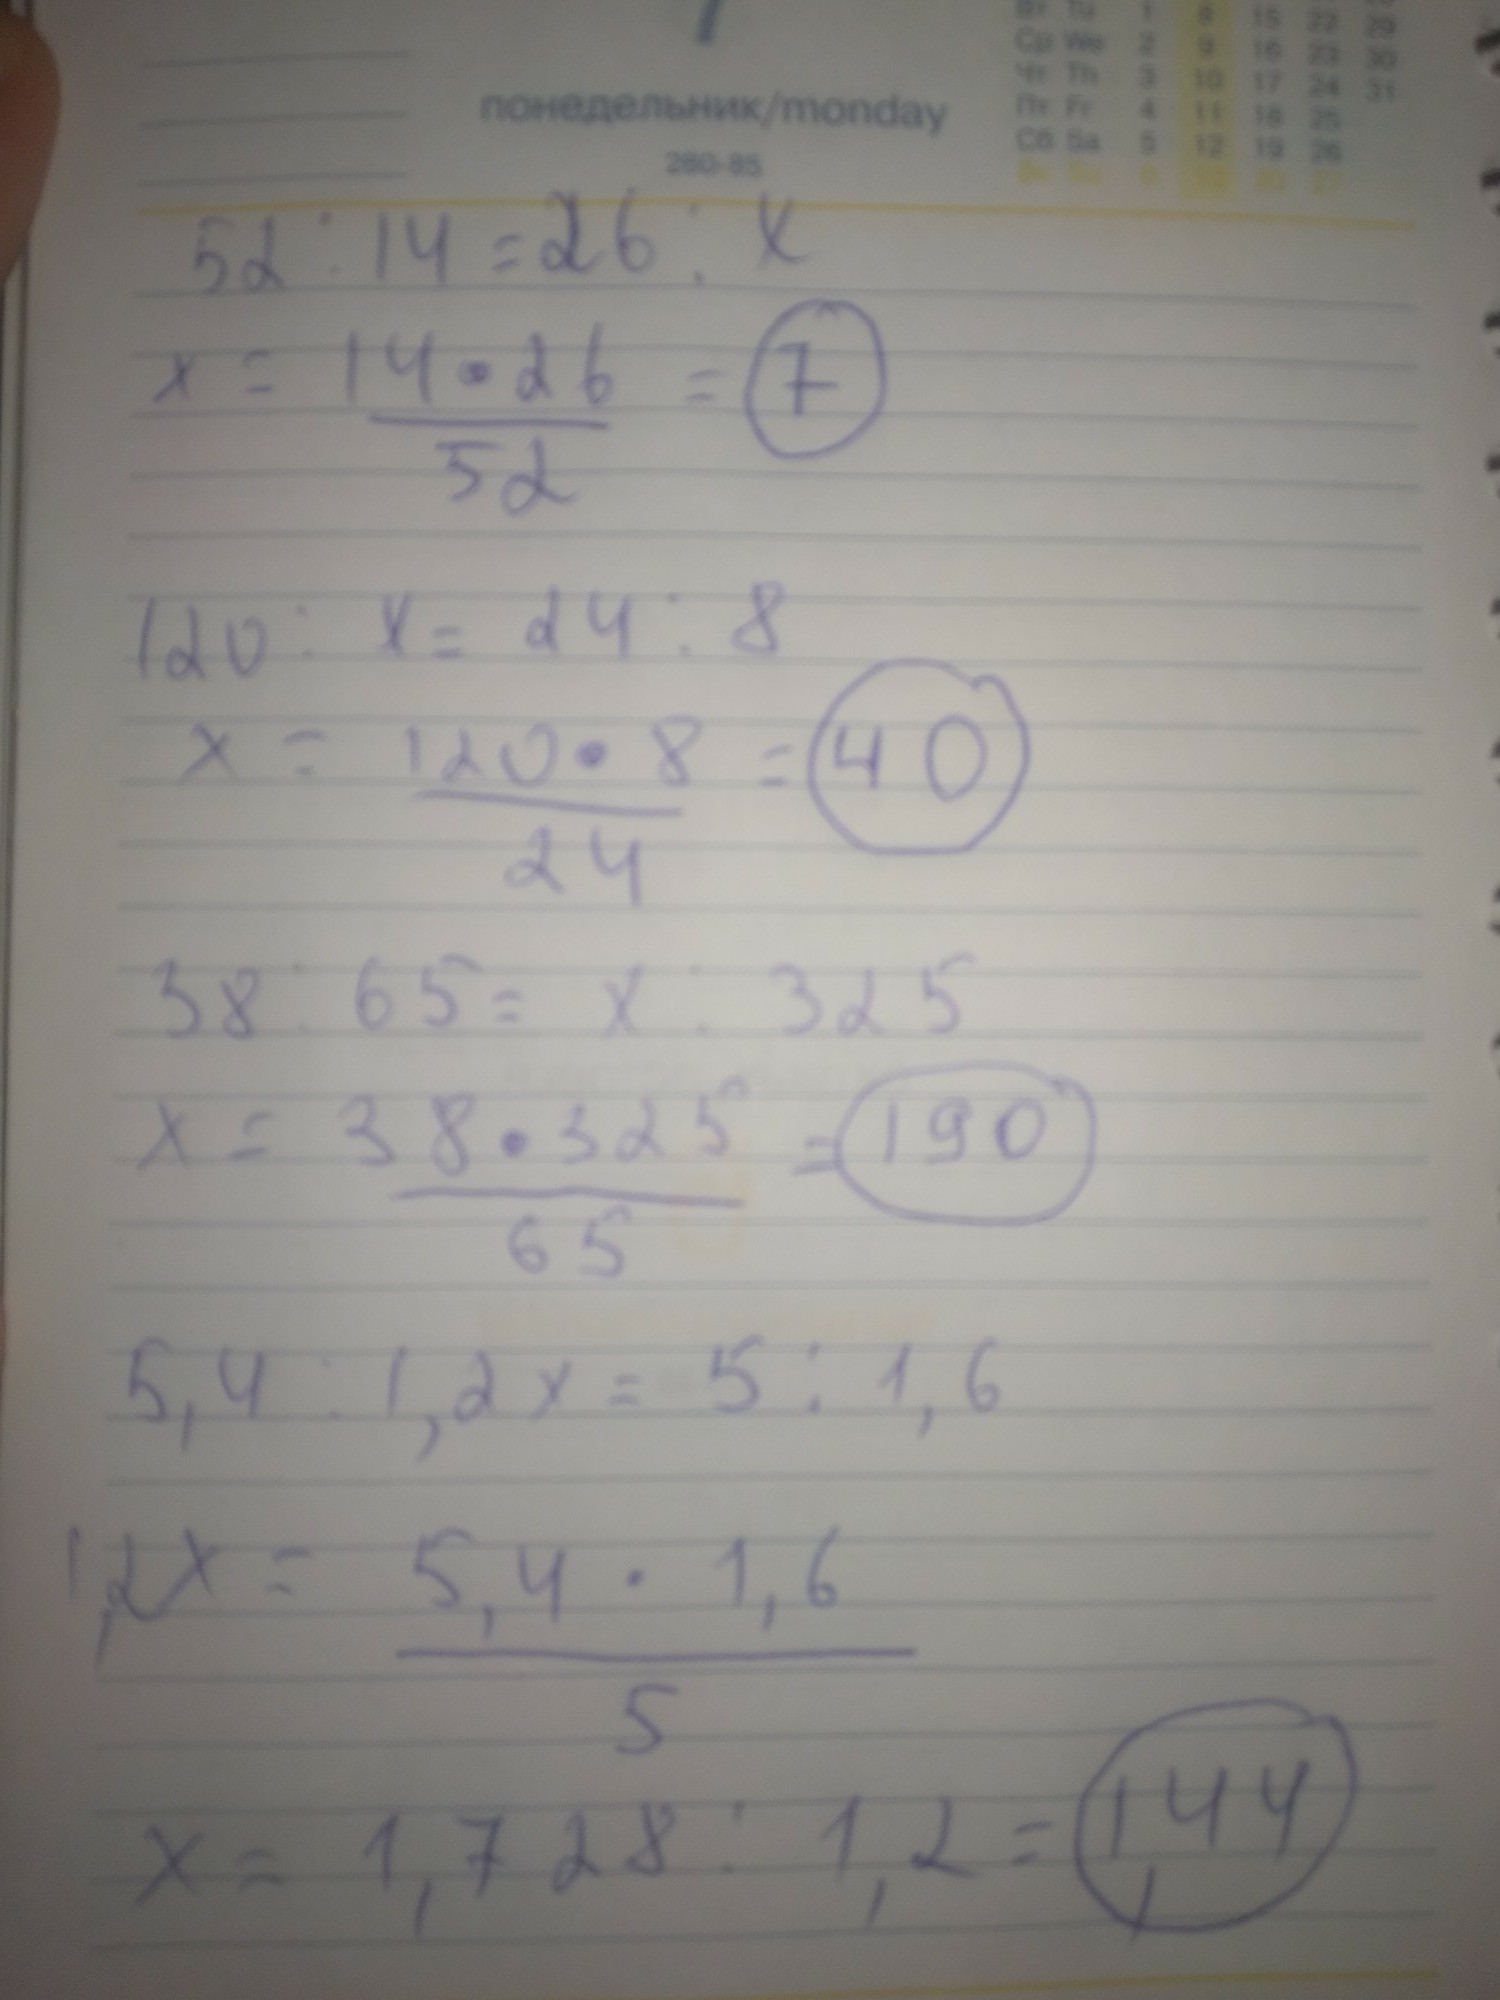 Вт Tu 1 8 15 22 29
Ср We 2 9 16 23 30
Чт Th 3 10 17 24 31
Пт Fr 4 11 18 25
Сб Sa 5 12 19 26
понедельник/monday
280-85
52 : 14 = 26 : x
x = 14 • 26 = 7
52
120 : x = 24 : 8
x = 120 • 8 = 40
24
38 : 65 = x : 325
x = 38 • 325 = 190
65
5,4 : 1,2x = 5 : 1,6
1,2x = 5,4 · 1,6
5
x = 1,728 : 1,2 = 1,44